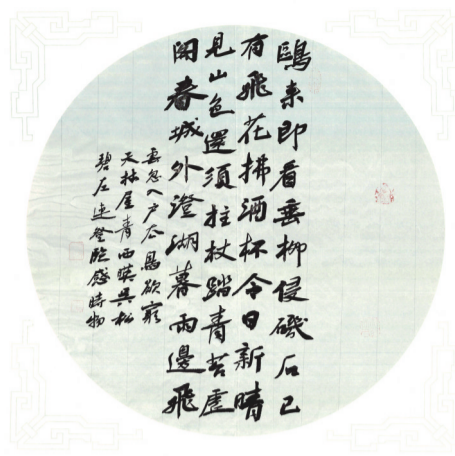 鷗来即看垂柳侵磯石已
有飛花拂酒杯今日新晴
見山色還須拄杖踏青苔虛
閣春城外澄湖暮雨邊飛
雲忽入戶去鳥欲窮
天林屋青西映吳松
碧左連登臨感時物